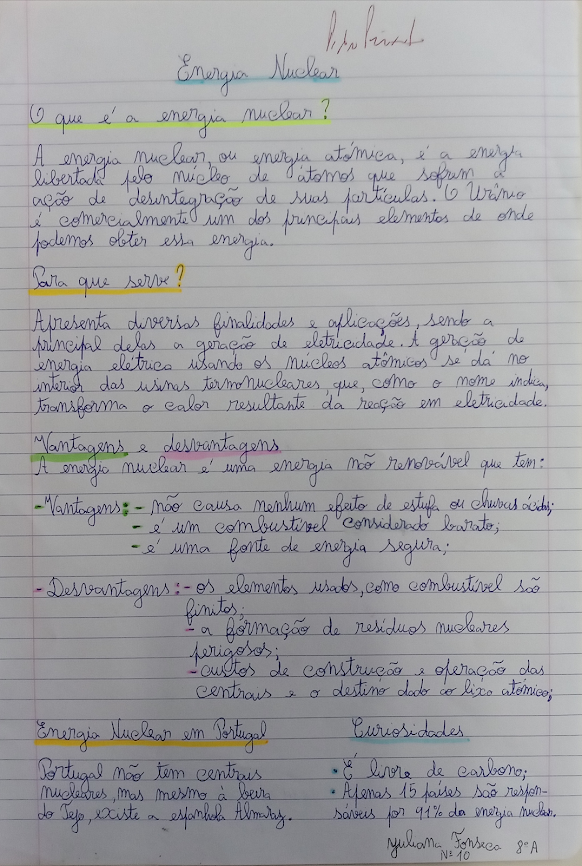 Energia Nuclear
O que é a energia nuclear?
A energia nuclear, ou energia atómica, é a energia
libertada pelo núcleo de átomos que sofrem a
ação de desintegração de suas partículas. O Urânio
é comercialmente um dos principais elementos de onde
podemos obter essa energia.
Para que serve?
Apresenta diversas finalidades e aplicações, sendo a
principal delas a geração de eletricidade. A geração de
energia elétrica usando os núcleos atômicos se dá no
interior das usinas termonucleares que, como o nome indica,
transforma o calor resultante da reação em eletricidade.
Vantagens e desvantagens
A energia nuclear é uma energia não renovável que tem:
- Vantagens: - não causa nenhum efeito de estufa ou chuvas ácidas;
- é um combustível considerado barato;
- é uma fonte de energia segura;
- Desvantagens: - os elementos usados, como combustível são
finitos;
- a formação de resíduos nucleares
perigosos;
- custos de construção e operação das
centrais e o destino dado ao lixo atómico;
Energia Nuclear em Portugal
Portugal não tem centrais
nucleares, mas mesmo à beira
do Tejo, existe a espanhola Almaraz.
Curiosidades
• É livre de carbono;
• Apenas 15 países são respon-
sáveis por 91% da energia nuclear.
Yuliana Fonseca 8ºA
Nº 10